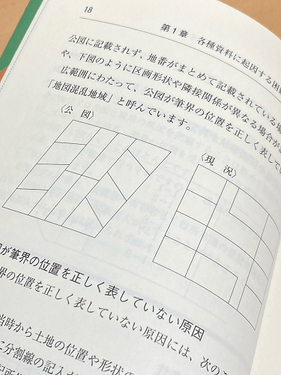 18
第1章　各種資料に起因する困
公図に記載されず、地番がまとめて記載されている場
や、下図のように区画形状や隣接関係が異なる場合が
広範囲にわたって、公図が筆界の位置を正しく表してい
「地図混乱地域」と呼んでいます。
〈公　図〉
〈現　況〉
が筆界の位置を正しく表していない原因
界の位置を正しく表していない原因には、次のこ
当時から土地の位置や形状の
に分割線の記入を